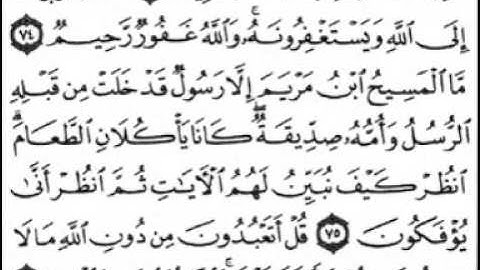 إِلَى ٱللَّهِ وَيَسْتَغْفِرُونَهُۥۚ وَٱللَّهُ غَفُورٌ رَّحِيمٌ ٧٤
مَّا ٱلْمَسِيحُ ٱبْنُ مَرْيَمَ إِلَّا رَسُولٌ قَدْ خَلَتْ مِن قَبْلِهِ
ٱلرُّسُلُ وَأُمُّهُۥ صِدِّيقَةٌۖ كَانَا يَأْكُلَانِ ٱلطَّعَامَۗ
ٱنظُرْ كَيْفَ نُبَيِّنُ لَهُمُ ٱلْآيَٰتِ ثُمَّ ٱنظُرْ أَنَّىٰ
يُؤْفَكُونَ ٧٥ قُلْ أَتَعْبُدُونَ مِن دُونِ ٱللَّهِ مَا لَا